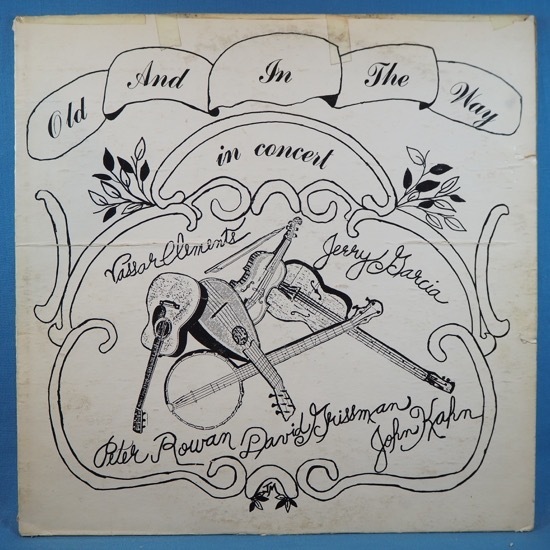 Old And In The Way
in concert
Vassar Clements
Jerry Garcia
Peter Rowan David Grissman John Kahn
TM